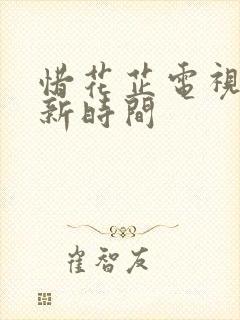 惜花芷電視
新時間
崔智友